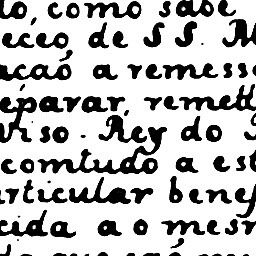 do, como sabe
eceo, de S S. M
acaõ a remess
eparar, remett
viso-Rey do
comtudo a est
articular benef
cida a o mesm